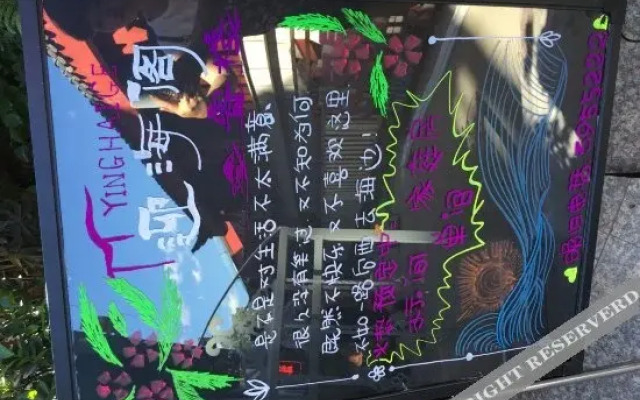 YINGHAIGE
迎海阁
是不是对生活不太满意
很久没有笑过又不知为何
既然不快乐又不喜欢这里
不如一路向西去海边!
预定中
家庭房
RIGHT RESERVERD